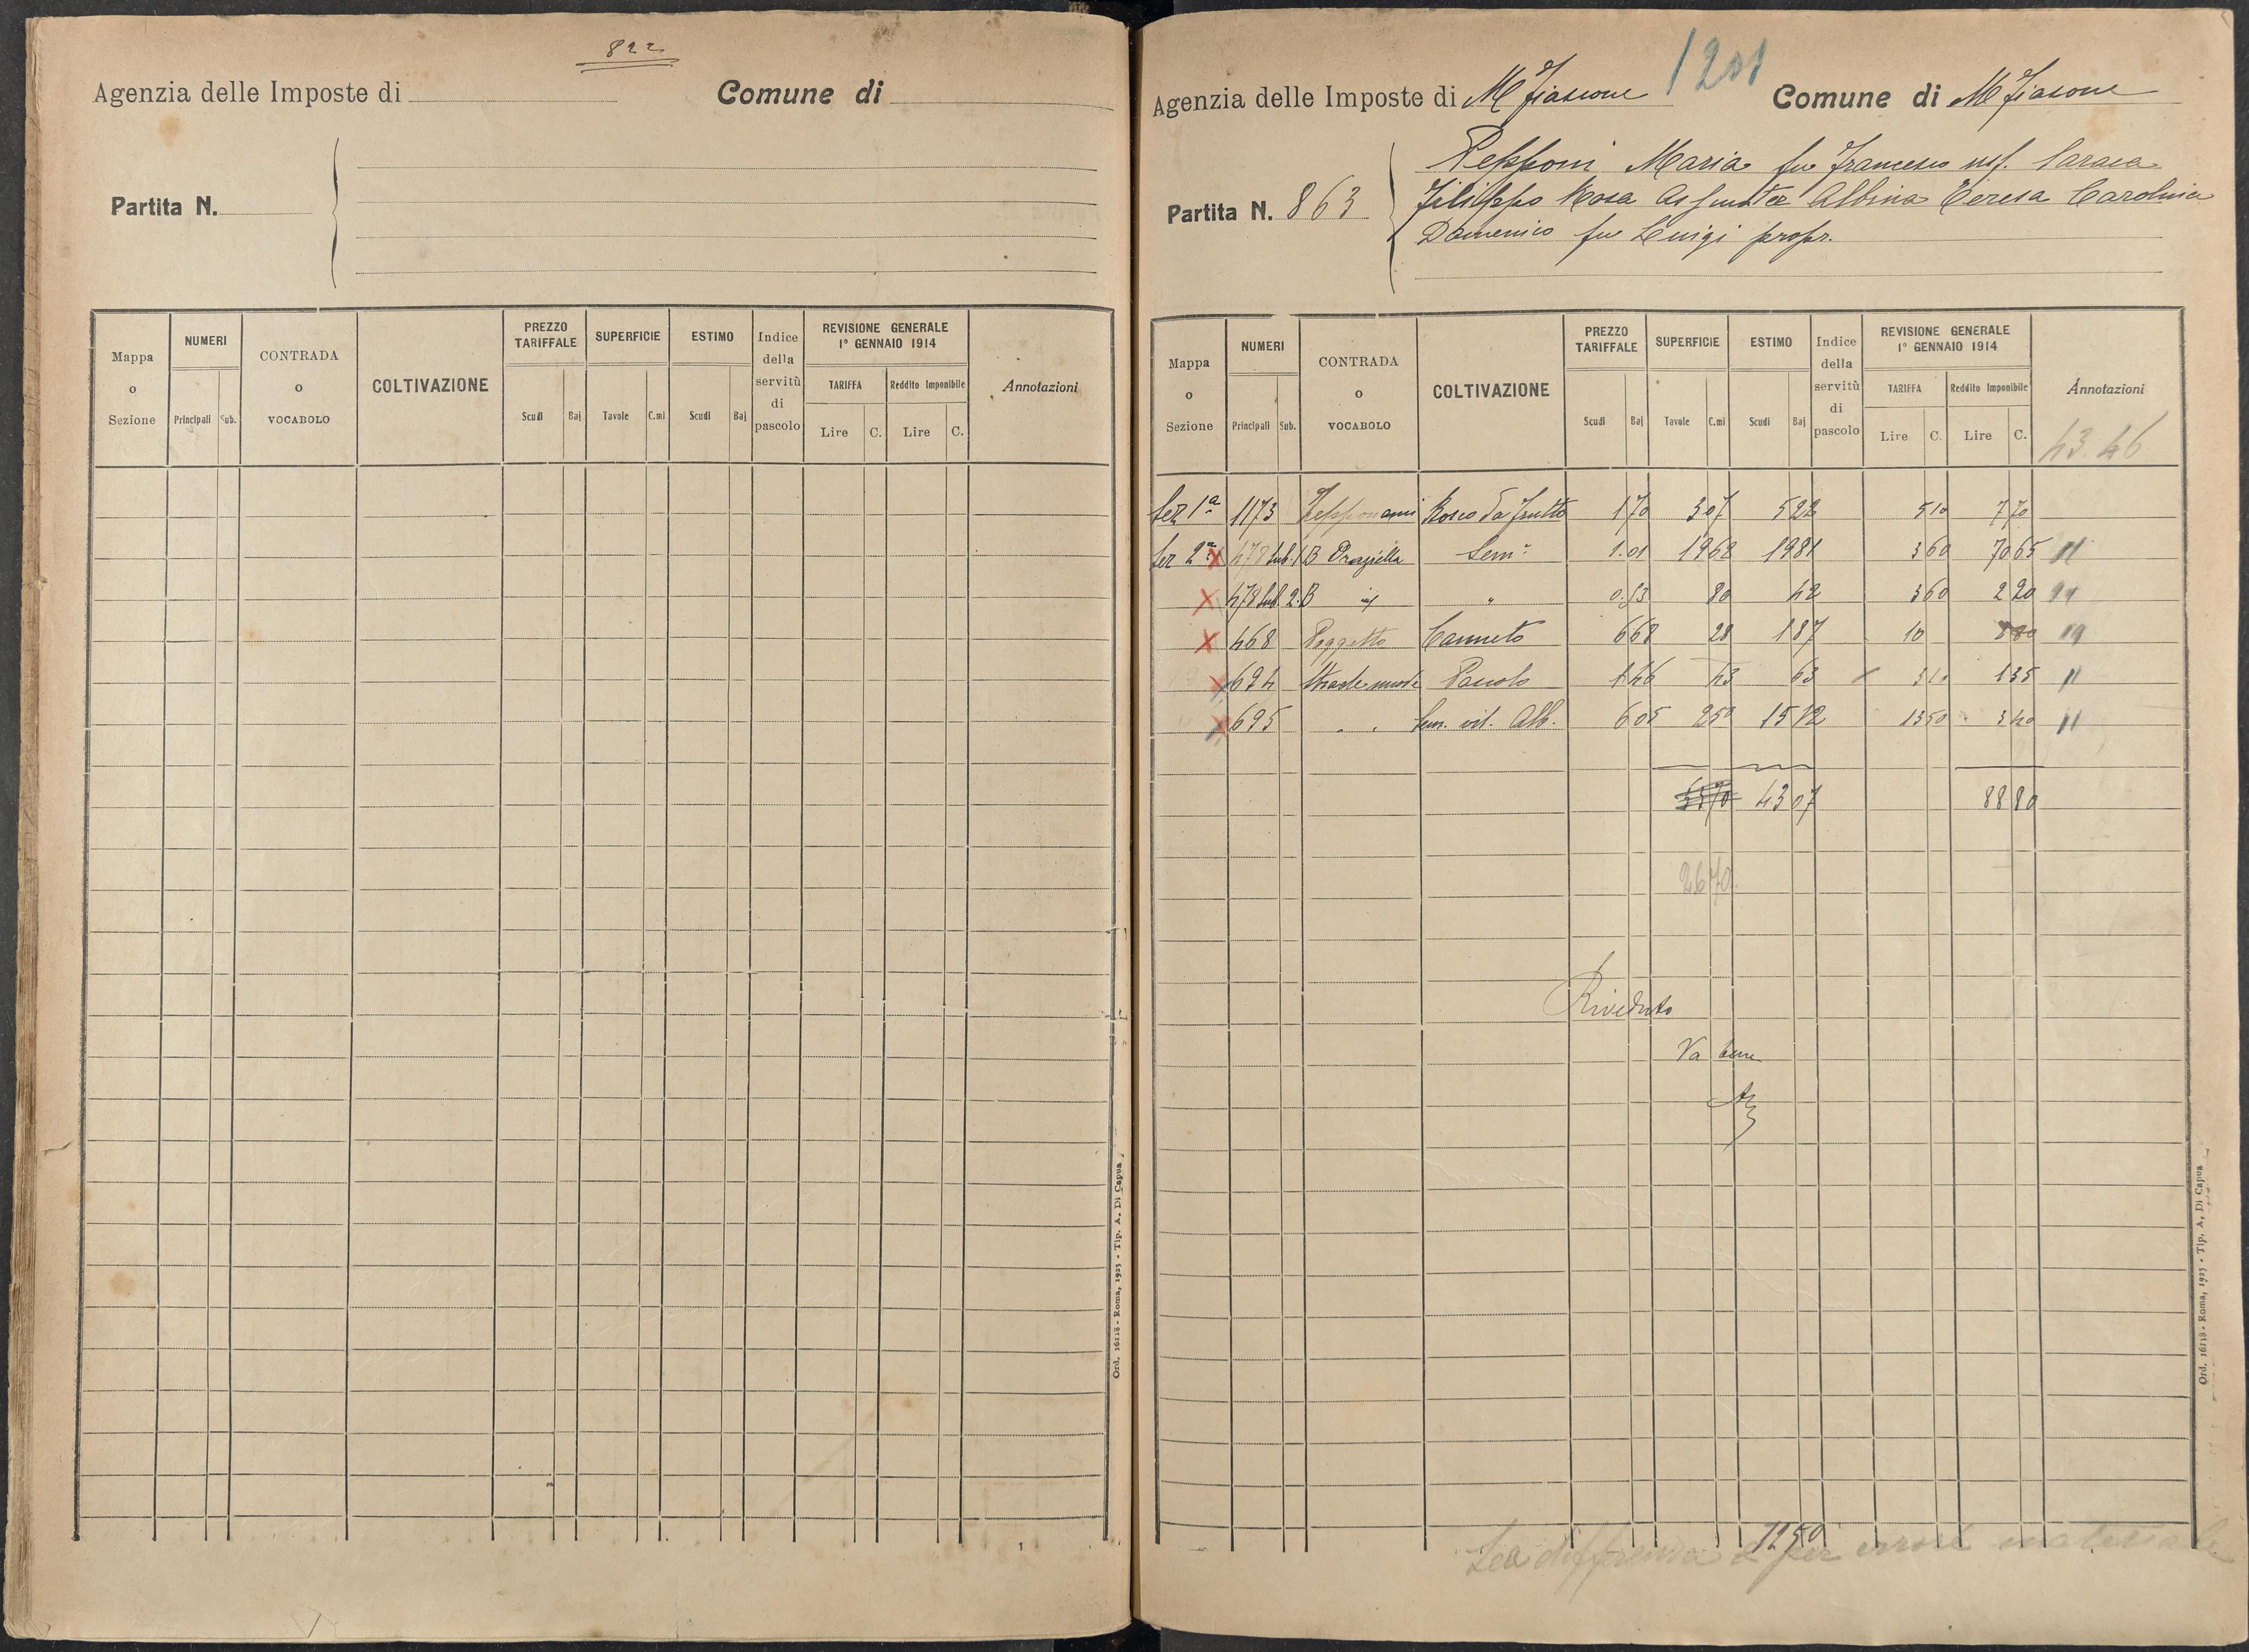 822
Agenzia delle Imposte di
Comune di
Partita N.
Mappa o Sezione
NUMERI
Principali Sub.
CONTRADA o VOCABOLO
COLTIVAZIONE
PREZZO TARIFFALE
Scudi Baj
SUPERFICIE
Tavole C.mi
ESTIMO
Scudi Baj
Indice della servitù di pascolo
REVISIONE GENERALE 1° GENNAIO 1914
TARIFFA
Lire C.
Reddito Imponibile
Lire C.
Annotazioni
Ord. 16118 - Roma, 1923 - Tip. A. Di Capua
1201
Agenzia delle Imposte di M Fiascone
Comune di M Fiascone
Partita N. 863
Pepponi Maria fu Francesco usf.
Filippo Rosa Assunta Albina Teresa Carolina
Domenico fu Luigi propr.
Mappa o Sezione
NUMERI
Principali Sub.
CONTRADA o VOCABOLO
COLTIVAZIONE
PREZZO TARIFFALE
Scudi Baj
SUPERFICIE
Tavole C.mi
ESTIMO
Scudi Baj
Indice della servitù di pascolo
REVISIONE GENERALE 1° GENNAIO 1914
TARIFFA
Lire C.
Reddito Imponibile
Lire C.
Annotazioni
43.46
Sez 1ª 1173 Zepponami Bosco da frutto 170 307 522 510 770
Sez 2ª 478 sub.1 B Sem. 1.01 1968 1981 360 7065 "
478 sub 2.B id " 0.53 80 42 360 220 "
468 Poggetto Canneto 668 28 187 10 880 "
694 Pascolo 146 43 63 310 135 "
695 " " Sem. vit. Alb. 605 250 1512 1350 340 "
4307 8880
2670
Riveduto
Va bene
1250
La differenza è per errore materiale
Ord. 16118 - Roma, 1923 - Tip. A. Di Capua